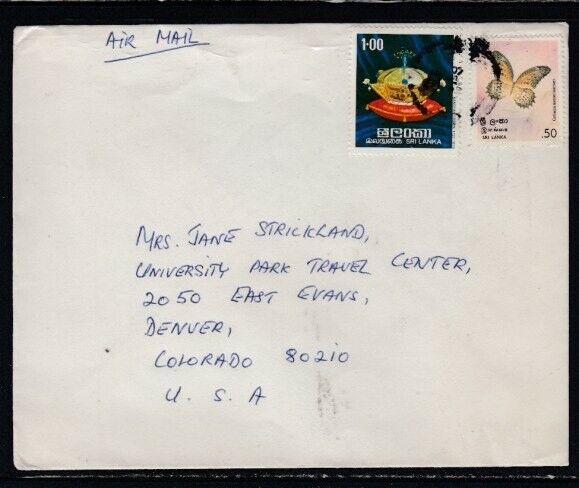 AIR MAIL
1·00
ශ්‍රී ලංකා
இலங்கை SRI LANKA
ශ්‍රී ලංකා
இலங்கை
SRI LANKA
.50
MRS. JANE STRICKLAND,
UNIVERSITY PARK TRAVEL CENTER,
2050 EAST EVANS,
DENVER,
COLORADO 80210
U. S. A